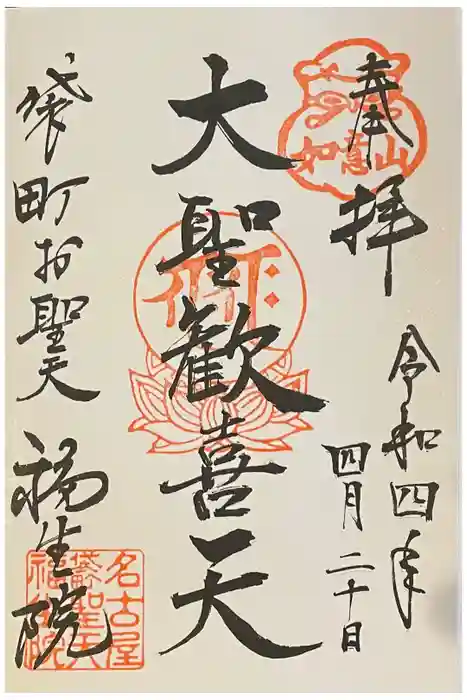 奉拝
如意山
令和四年
四月二十日
大聖歓喜天
袋町お聖天
福生院
名古屋
袋町聖天
福生院